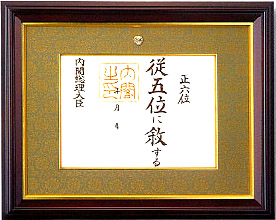 正六位
従五位に叙する
年月日
内閣総理大臣
内閣之印